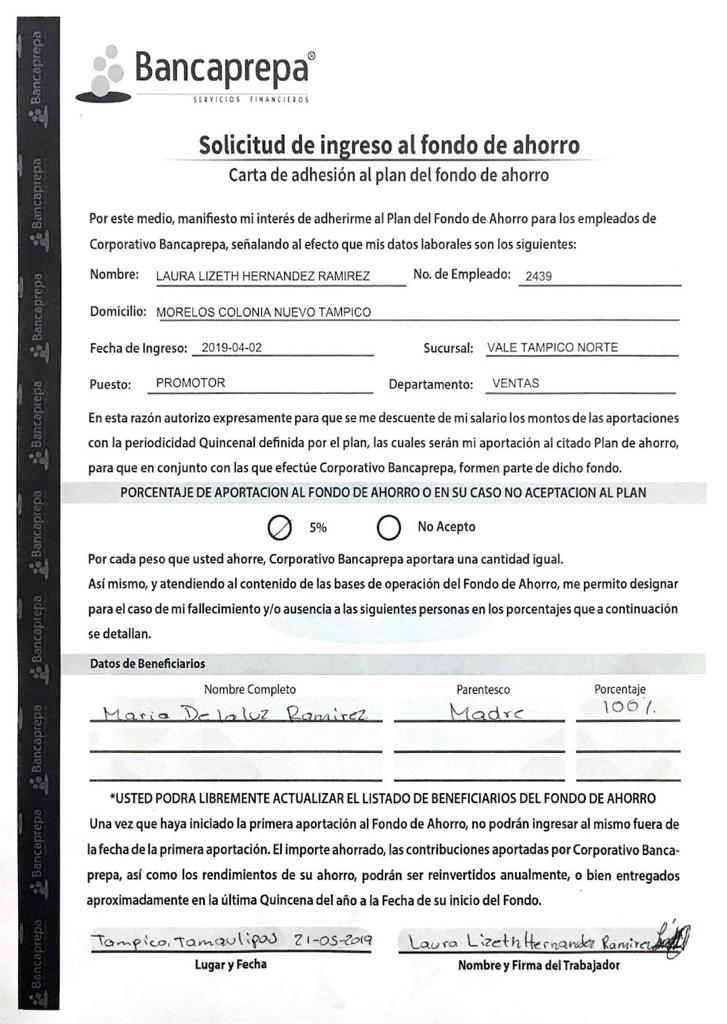 Bancaprepa®
SERVICIOS FINANCIEROS
Solicitud de ingreso al fondo de ahorro
Carta de adhesión al plan del fondo de ahorro
Por este medio, manifiesto mi interés de adherirme al Plan del Fondo de Ahorro para los empleados de
Corporativo Bancaprepa, señalando al efecto que mis datos laborales son los siguientes:
Nombre: LAURA LIZETH HERNANDEZ RAMIREZ No. de Empleado: 2439
Domicilio: MORELOS COLONIA NUEVO TAMPICO
Fecha de Ingreso: 2019-04-02 Sucursal: VALE TAMPICO NORTE
Puesto: PROMOTOR Departamento: VENTAS
En esta razón autorizo expresamente para que se me descuente de mi salario los montos de las aportaciones
con la periodicidad Quincenal definida por el plan, las cuales serán mi aportación al citado Plan de ahorro,
para que en conjunto con las que efectúe Corporativo Bancaprepa, formen parte de dicho fondo.
PORCENTAJE DE APORTACION AL FONDO DE AHORRO O EN SU CASO NO ACEPTACION AL PLAN
5% No Acepto
Por cada peso que usted ahorre, Corporativo Bancaprepa aportara una cantidad igual.
Así mismo, y atendiendo al contenido de las bases de operación del Fondo de Ahorro, me permito designar
para el caso de mi fallecimiento y/o ausencia a las siguientes personas en los porcentajes que a continuación
se detallan.
Datos de Beneficiarios
Nombre Completo Parentesco Porcentaje
Maria De la luz Ramirez Madre 100%
*USTED PODRA LIBREMENTE ACTUALIZAR EL LISTADO DE BENEFICIARIOS DEL FONDO DE AHORRO
Una vez que haya iniciado la primera aportación al Fondo de Ahorro, no podrán ingresar al mismo fuera de
la fecha de la primera aportación. El importe ahorrado, las contribuciones aportadas por Corporativo Banca-
prepa, así como los rendimientos de su ahorro, podrán ser reinvertidos anualmente, o bien entregados
aproximadamente en la última Quincena del año a la Fecha de su inicio del Fondo.
Tampico, Tamaulipas 21-05-2019 Laura Lizeth Hernandez Ramirez
Lugar y Fecha Nombre y Firma del Trabajador
Bancaprepa
Bancaprepa
Bancaprepa
Bancaprepa
Bancaprepa
Bancaprepa
Bancaprepa
Bancaprepa
Bancaprepa